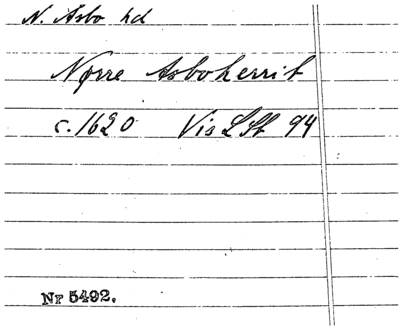 N. Asbo hd
Nørre Asboherrit
c. 1620 Vis LSt 94
Nr 5492.